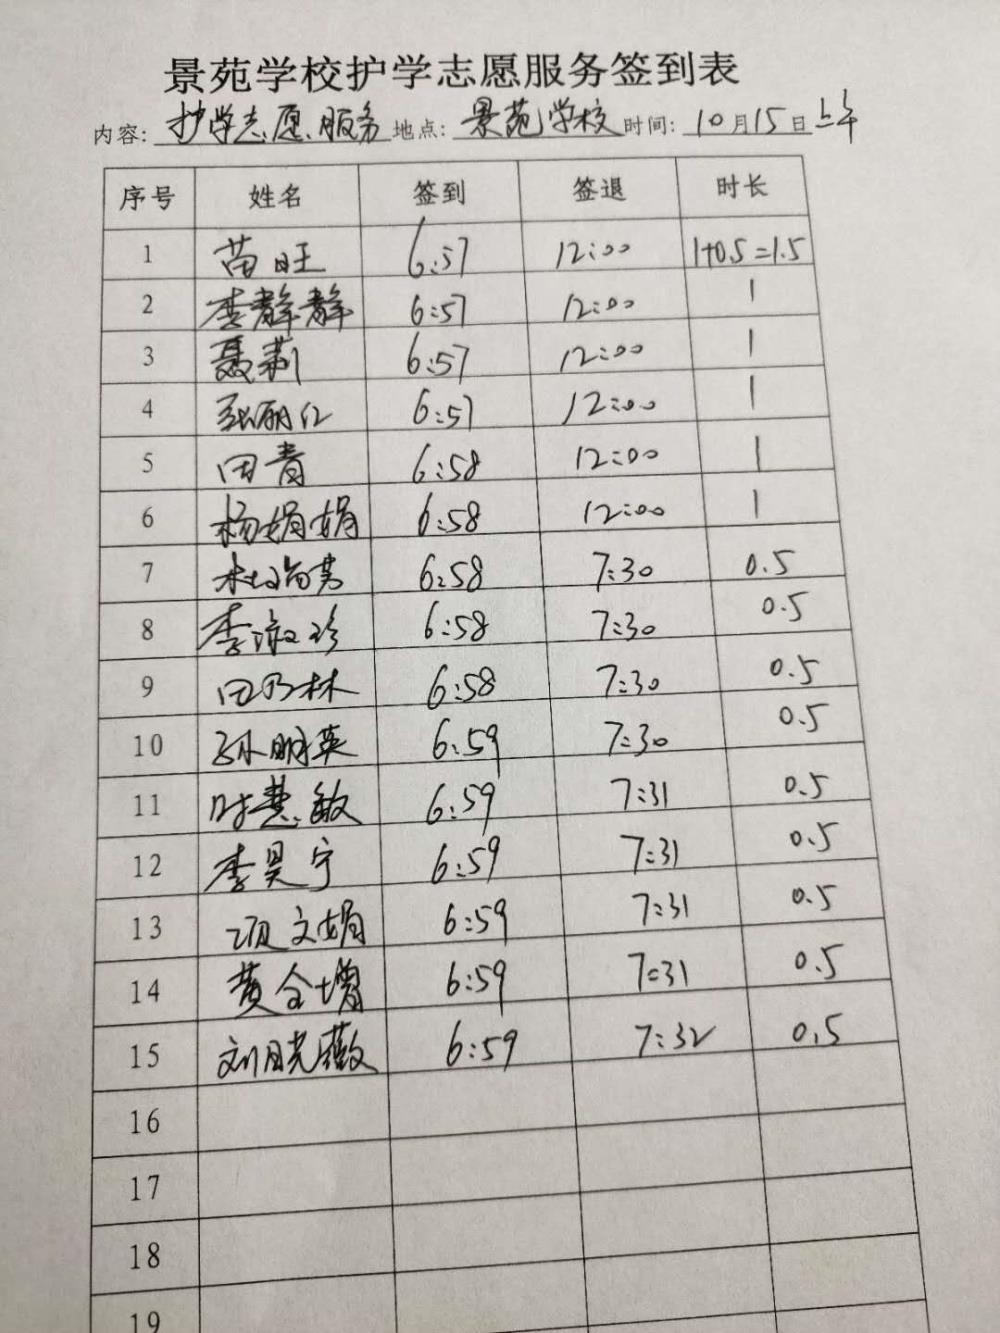 景苑学校护学志愿服务签到表
内容: 护学志愿服务 地点: 景苑学校 时间: 10月15日上午
序号 姓名 签到 签退 时长
1 苗旺 6:57 12:00 1+0.5=1.5
2 李静静 6:57 12:00 1
3 聂莉 6:57 12:00 1
4 张丽红 6:57 12:00 1
5 田青 6:58 12:00 1
6 杨娟娟 6:58 12:00 1
7 6:58 7:30 0.5
8 李淑珍 6:58 7:30 0.5
9 田乃林 6:58 7:30 0.5
10 孙明英 6:59 7:30 0.5
11 时慧敏 6:59 7:31 0.5
12 李昊宁 6:59 7:31 0.5
13 项文娟 6:59 7:31 0.5
14 黄全增 6:59 7:31 0.5
15 刘晓薇 6:59 7:32 0.5
16
17
18
19